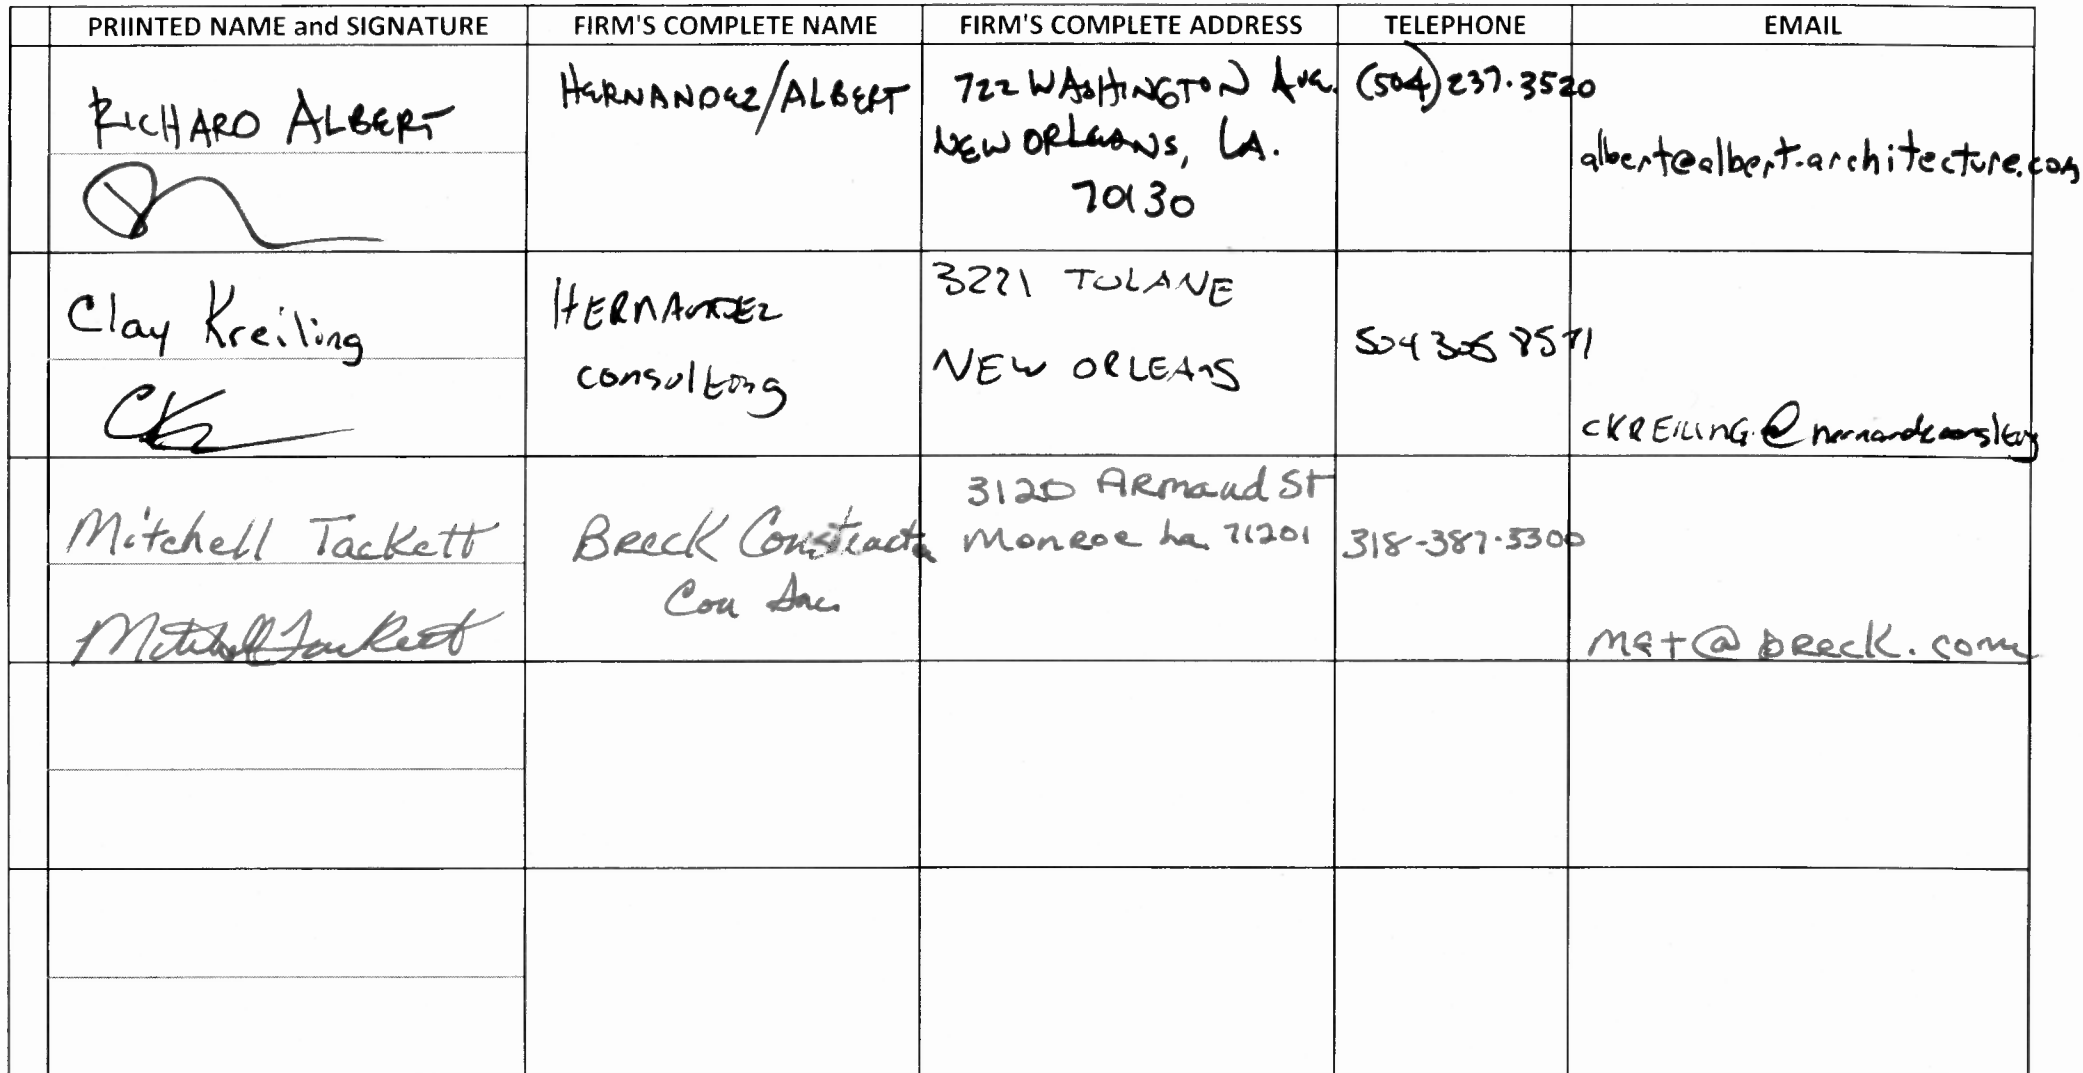 PRIINTED NAME and SIGNATURE FIRM'S COMPLETE NAME FIRM'S COMPLETE ADDRESS TELEPHONE EMAIL
RICHARD ALBERT
HERNANDEZ/ALBERT
722 WASHINGTON Ave.
NEW ORLEANS, LA.
70130
(504) 237.3520
albert@albert-architecture.com
Clay Kreiling
CK
HERNANDEZ
consulting
3221 TULANE
NEW ORLEANS
504 305 8571
CKREILING@
Mitchell Tackett
Mitchell Tackett
Breck Construction
Con Inc.
3120 Armand St
Monroe La. 71201
318-387-3300
met@breck.com